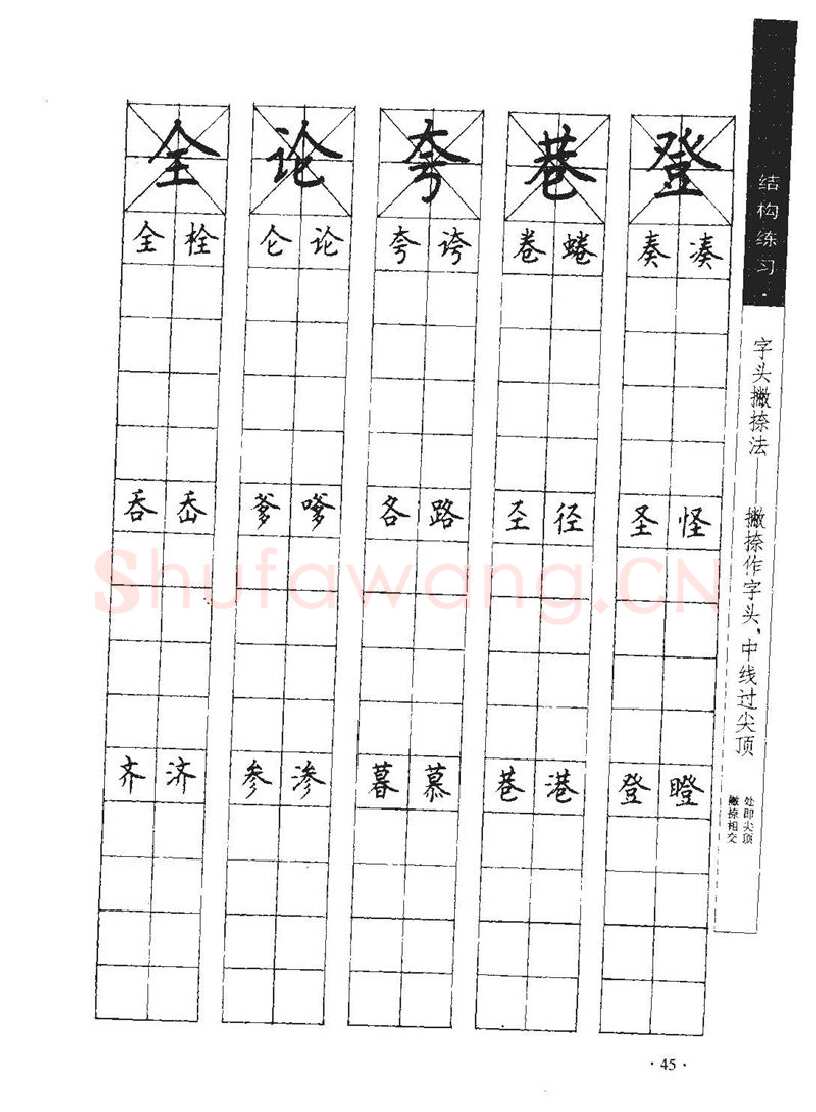 结构练习·
字头撇捺法——撇捺作字头,中线过尖顶
撇捺相交
处即尖顶
全 论 夸 巷 登
全 栓 仑 论 夸 诮 卷 蜷 奏 凑
吞 岙 爹 嗲 各 路 圣 径 圣 怪
齐 济 参 渗 暮 慕 巷 港 登 瞪
Shufawang.CN
·45·